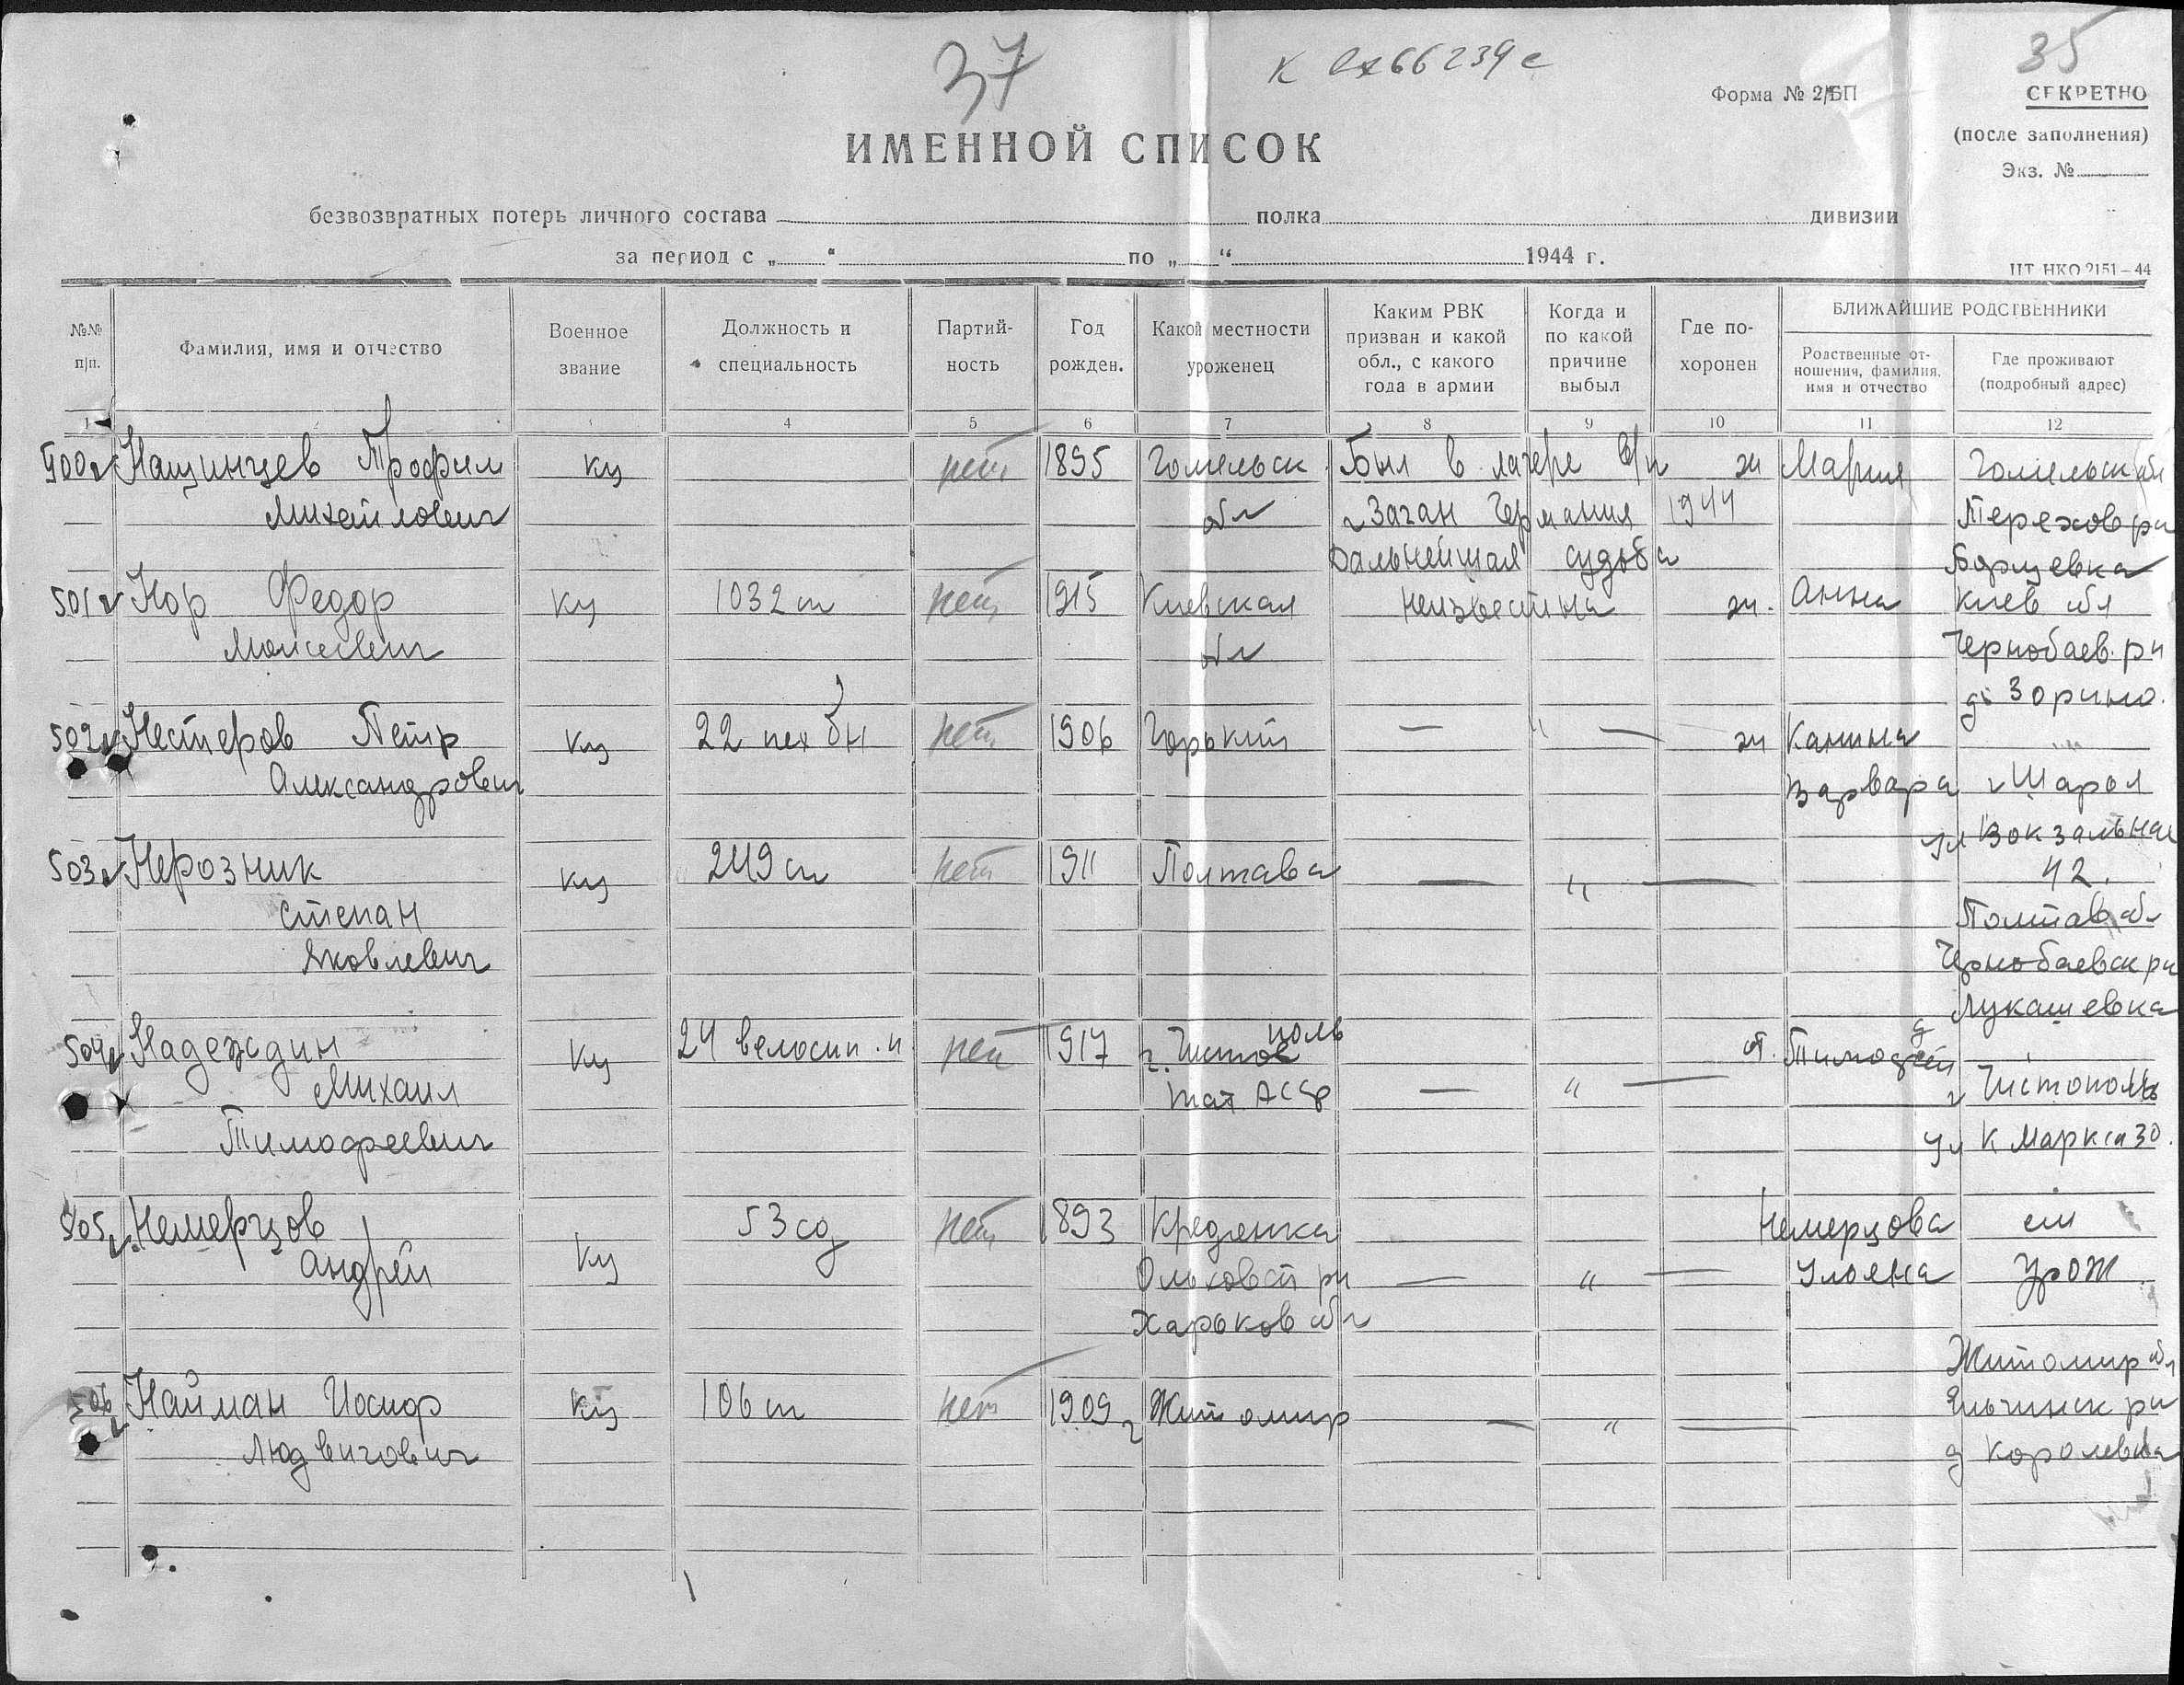 37
К вх 66239с
35
Форма № 2/БП
СЕКРЕТНО
(после заполнения)
Экз. №
ИМЕННОЙ СПИСОК
безвозвратных потерь личного состава полка дивизии
за период с „ “ по „ “ 1944 г.
ЦТ НКО 2151—44
№№ п/п.
Фамилия, имя и отчество
Военное звание
Должность и специальность
Партий-
ность
Год рожден.
Какой местности уроженец
Каким РВК
призван и какой
обл., с какого
года в армии
Когда и
по какой
причине
выбыл
Где по-
хоронен
БЛИЖАЙШИЕ РОДСТВЕННИКИ
Родственные от-
ношения, фамилия,
имя и отчество
Где проживают
(подробный адрес)
1 4 5 6 7 8 9 10 11 12
500 Нащинцев Трофим кц нет 1895 Гомельск Был в лагере в/п ж Мария Гомельск обл
Михайлович обл г Заган Германия 1944 Терехов рн
Дальнейшая судьба Борщевка
501 Нор Федор кц 1032 сп нет 1915 Киевская неизвестна ж. Анна Киев обл
Моисеевич обл Чернобаев. рн
д. Зорино.
502 Нестеров Петр кц 22 пех бн нет 1906 Горький — " — ж Канина
Александрович Варвара г Шарол
ул Вокзальная
503 Нерозник кц 249 сп нет 1911 Полтава — " — 42.
Степан Полтав обл
Яковлевич Чернобаевск рн
Лукашевка
504 Надеждин кц 24 велосип. п нет 1917 г. Чистополь от. Тимофей
Михаил тат АССР — " — г Чистополь
Тимофеевич ул К Маркса 30.
505 Немерцов кц 53 сд нет 1893 Кредянка Немерцова см
Андрей Ольховат рн — " — Ульяна урож
Харьков обл
Житомир обл
506 Найман Иосиф кц 106 сп нет 1909 г Житомир — " — рн
Людвигович д Королевка